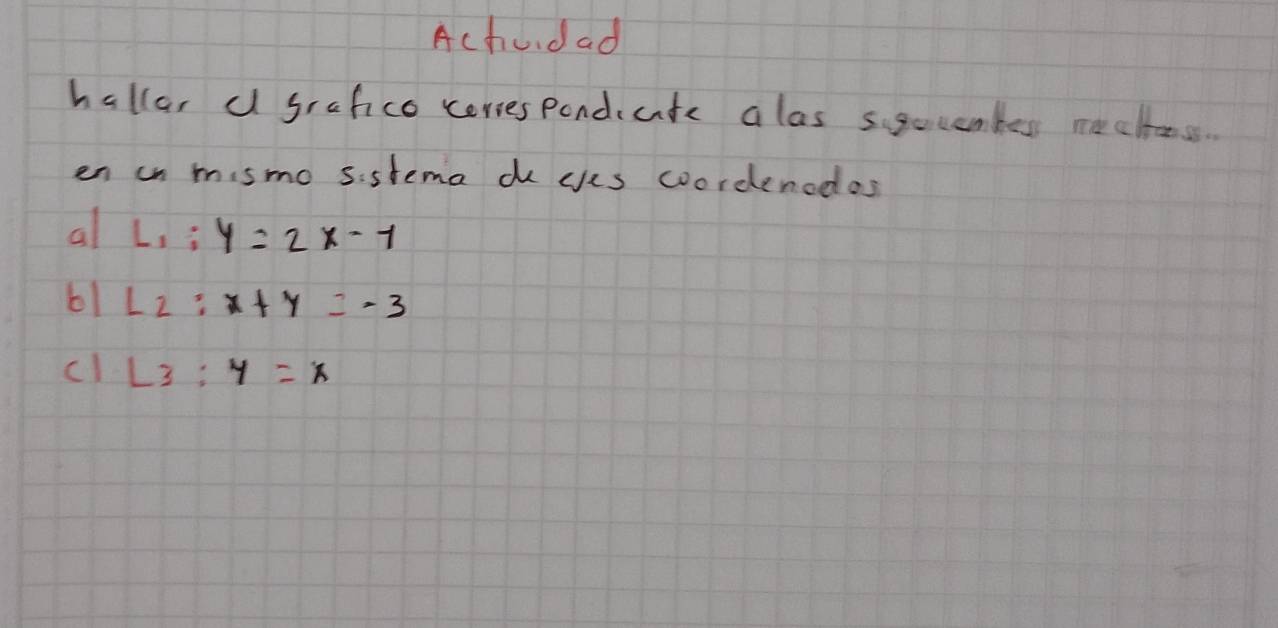 Actividad
hallar el grafico correspondiente a las siguientes rectas..
en un mismo sistema de ejes coordenados
a) L1 : y = 2x - 1
b) L2 : x + y = -3
c) L3 : y = x